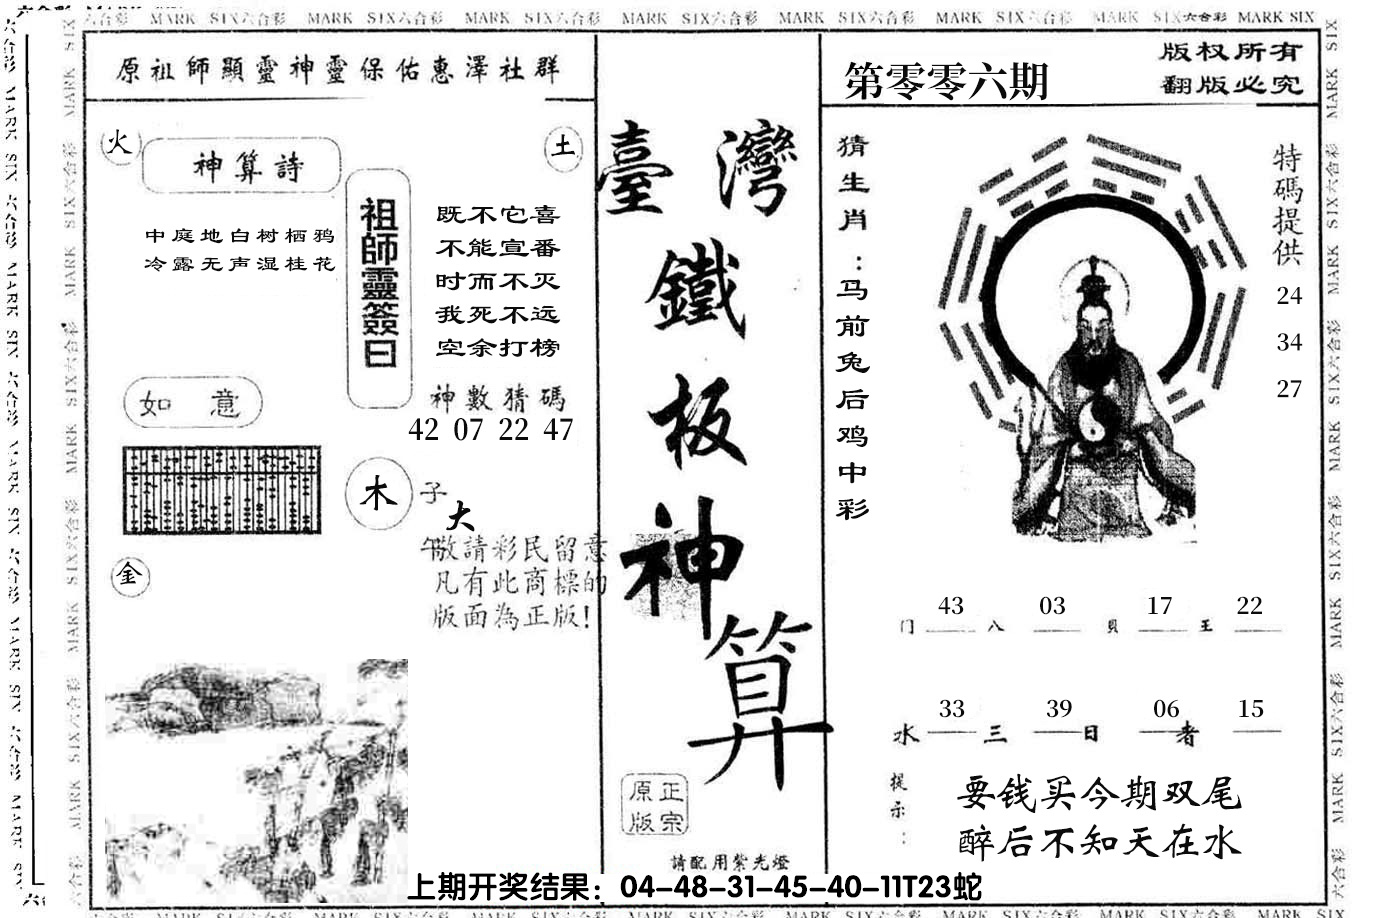 MARK SIX六合彩 MARK SIX六合彩 MARK SIX六合彩 MARK SIX六合彩 MARK SIX六合彩 MARK SIX六合彩 MARK SIX六合彩 MARK SIX
原祖師顯靈神靈保佑惠澤社群
火
神算詩
中庭地白树栖鸦
冷露无声湿桂花
土
祖師靈簽曰
既不它喜
不能宣番
时而不灭
我死不远
空余打榜
神數猜碼
42 07 22 47
如意
木
子
大
午
敬請彩民留意
凡有此商標的
版面為正版!
金
臺灣
鐵
板
神
算
正宗
原版
請配用紫光燈
第零零六期
版权所有
翻版必究
猜生肖:马前兔后鸡中彩
特碼提供
24
34
27
门 43 八 03 貝 17 王 22
水 33 三 39 日 06 者 15
提示:
要钱买今期双尾
醉后不知天在水
上期开奖结果：04-48-31-45-40-11T23蛇